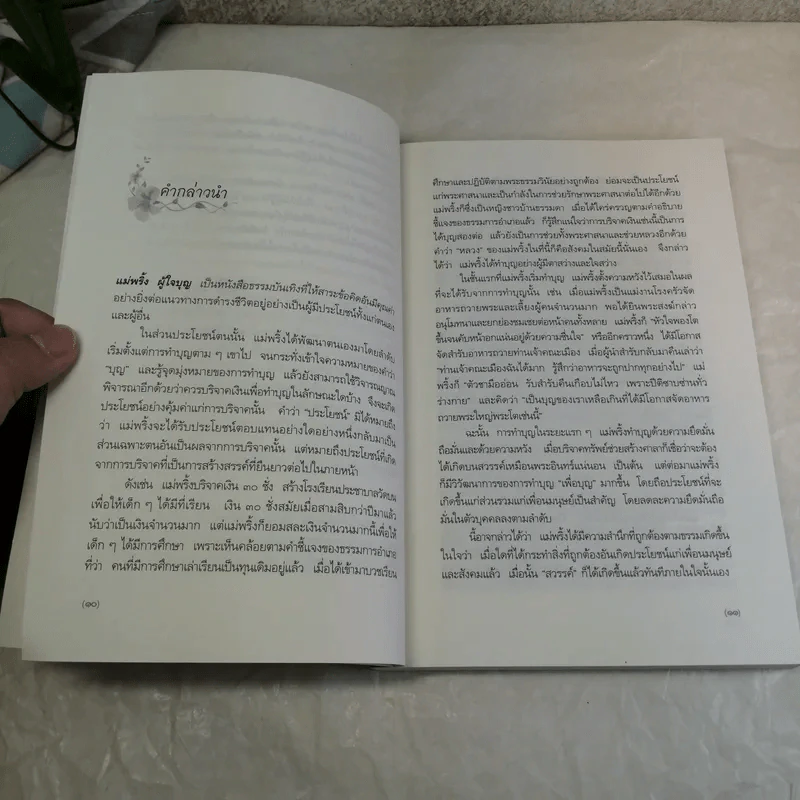 คำกล่าวนำ
แม่พริ้ง ผู้ใจบุญ เป็นหนังสือธรรมบันเทิงที่ให้สาระข้อคิดอันมีคุณค่า
อย่างยิ่งต่อแนวทางการดำรงชีวิตอยู่อย่างเป็นผู้มีประโยชน์ทั้งแก่ตนเอง
และผู้อื่น
ในส่วนประโยชน์ตนนั้น แม่พริ้งได้พัฒนาตนเองมาโดยลำดับ
เริ่มตั้งแต่การทำบุญตาม ๆ เขาไป จนกระทั่งเข้าใจความหมายของคำว่า
"บุญ" และรู้จุดมุ่งหมายของการทำบุญ แล้วยังสามารถใช้วิจารณญาณ
พิจารณาอีกด้วยว่าควรบริจาคเงินเพื่อทำบุญในลักษณะใดบ้าง จึงจะเกิด
ประโยชน์อย่างคุ้มค่าแก่การบริจาคนั้น คำว่า "ประโยชน์" มิได้หมายถึง
ว่า แม่พริ้งจะได้รับประโยชน์ตอบแทนอย่างใดอย่างหนึ่งกลับมาเป็น
ส่วนเฉพาะตนอันเป็นผลจากการบริจาคนั้น แต่หมายถึงประโยชน์ที่เกิด
จากการบริจาคที่เป็นการสร้างสรรค์ที่ยืนยาวต่อไปในภายหน้า
ดังเช่น แม่พริ้งบริจาคเงิน ๓๐ ชั่ง สร้างโรงเรียนประชาบาลวัดบน
เพื่อให้เด็ก ๆ ได้มีที่เรียน เงิน ๓๐ ชั่งสมัยเมื่อสามสิบกว่าปีมาแล้ว
นับว่าเป็นเงินจำนวนมาก แต่แม่พริ้งก็ยอมสละเงินจำนวนมากนี้เพื่อให้
เด็ก ๆ ได้มีการศึกษา เพราะเห็นคล้อยตามคำชี้แจงของธรรมการอำเภอ
ที่ว่า คนที่มีการศึกษาเล่าเรียนเป็นทุนเดิมอยู่แล้ว เมื่อได้เข้ามาบวชเรียน
(๑๐)
ศึกษาและปฏิบัติตามพระธรรมวินัยอย่างถูกต้อง ย่อมจะเป็นประโยชน์
แก่พระศาสนาและเป็นกำลังในการช่วยรักษาพระศาสนาต่อไปได้อีกด้วย
แม่พริ้งก็ซึ่งเป็นหญิงชาวบ้านธรรมดา เมื่อได้ใคร่ครวญตามคำอธิบาย
ชี้แจงของธรรมการอำเภอแล้ว ก็รู้สึกแน่ใจว่าการบริจาคเงินเช่นนี้เป็นการ
ได้บุญสองต่อ แล้วยังเป็นการช่วยทั้งพระศาสนาและช่วยหลวงอีกด้วย
คำว่า "หลวง" ของแม่พริ้งในที่นี้ก็คือสังคมในสมัยนี้นั่นเอง จึงกล่าว
ได้ว่า แม่พริ้งได้ทำบุญอย่างผู้มีตาสว่างและใจสว่าง
ในชั้นแรกที่แม่พริ้งเริ่มทำบุญ แม่พริ้งตั้งความหวังไว้เสมอในผล
ที่จะได้รับจากการทำบุญนั้น เช่น เมื่อแม่พริ้งได้เป็นแม่งานโรงครัวจัด
อาหารถวายพระและเลี้ยงผู้คนจำนวนมาก พอได้ยินพระสงฆ์กล่าว
อนุโมทนาและยกย่องชมเชยต่อหน้าคนทั้งหลาย แม่พริ้งก็ "หัวใจพองโต
ขึ้นจนคับหน้าอกแน่นอยู่ด้วยความชื่นใจ" หรืออีกคราวหนึ่ง ได้มีโอกาส
จัดสำรับอาหารถวายท่านเจ้าคณะเมือง เมื่อผู้นำสำรับกลับมาคืนเล่าว่า
"ท่านเจ้าคณะเมืองฉันได้มาก รู้สึกว่าอาหารจะถูกปากทุกอย่างไป" แม่
พริ้งก็ "ตัวชามืออ่อน รับสำรับคืนเกือบไม่ไหว เพราะปีติซาบซ่านทั่ว
ร่างกาย" และคิดว่า "เป็นบุญของเราเหลือเกินที่ได้มีโอกาสจัดอาหาร
ถวายพระใหญ่พระโตเช่นนี้"
ฉะนั้น การทำบุญในระยะแรก ๆ แม่พริ้งทำบุญด้วยความยึดมั่น
ถือมั่นและด้วยความหวัง เมื่อบริจาคทรัพย์ช่วยสร้างศาลาก็เชื่อว่าจะต้อง
ได้เกิดบนสวรรค์เหมือนพระอินทร์แน่นอน เป็นต้น แต่ต่อมาแม่พริ้ง
ก็มีวิวัฒนาการของการทำบุญ "เพื่อบุญ" มากขึ้น โดยถือประโยชน์ที่จะ
เกิดขึ้นแก่ส่วนรวมแก่เพื่อนมนุษย์เป็นสำคัญ โดยลดละความยึดมั่นถือ
มั่นในตัวบุคคลลงตามลำดับ
นี้อาจกล่าวได้ว่า แม่พริ้งได้มีความสำนึกที่ถูกต้องตามธรรมเกิดขึ้น
ในใจว่า เมื่อใดที่ได้กระทำสิ่งที่ถูกต้องอันเกิดประโยชน์แก่เพื่อนมนุษย์
และสังคมแล้ว เมื่อนั้น "สวรรค์" ก็ได้เกิดขึ้นแล้วทันทีภายในใจนั้นเอง
(๑๑)